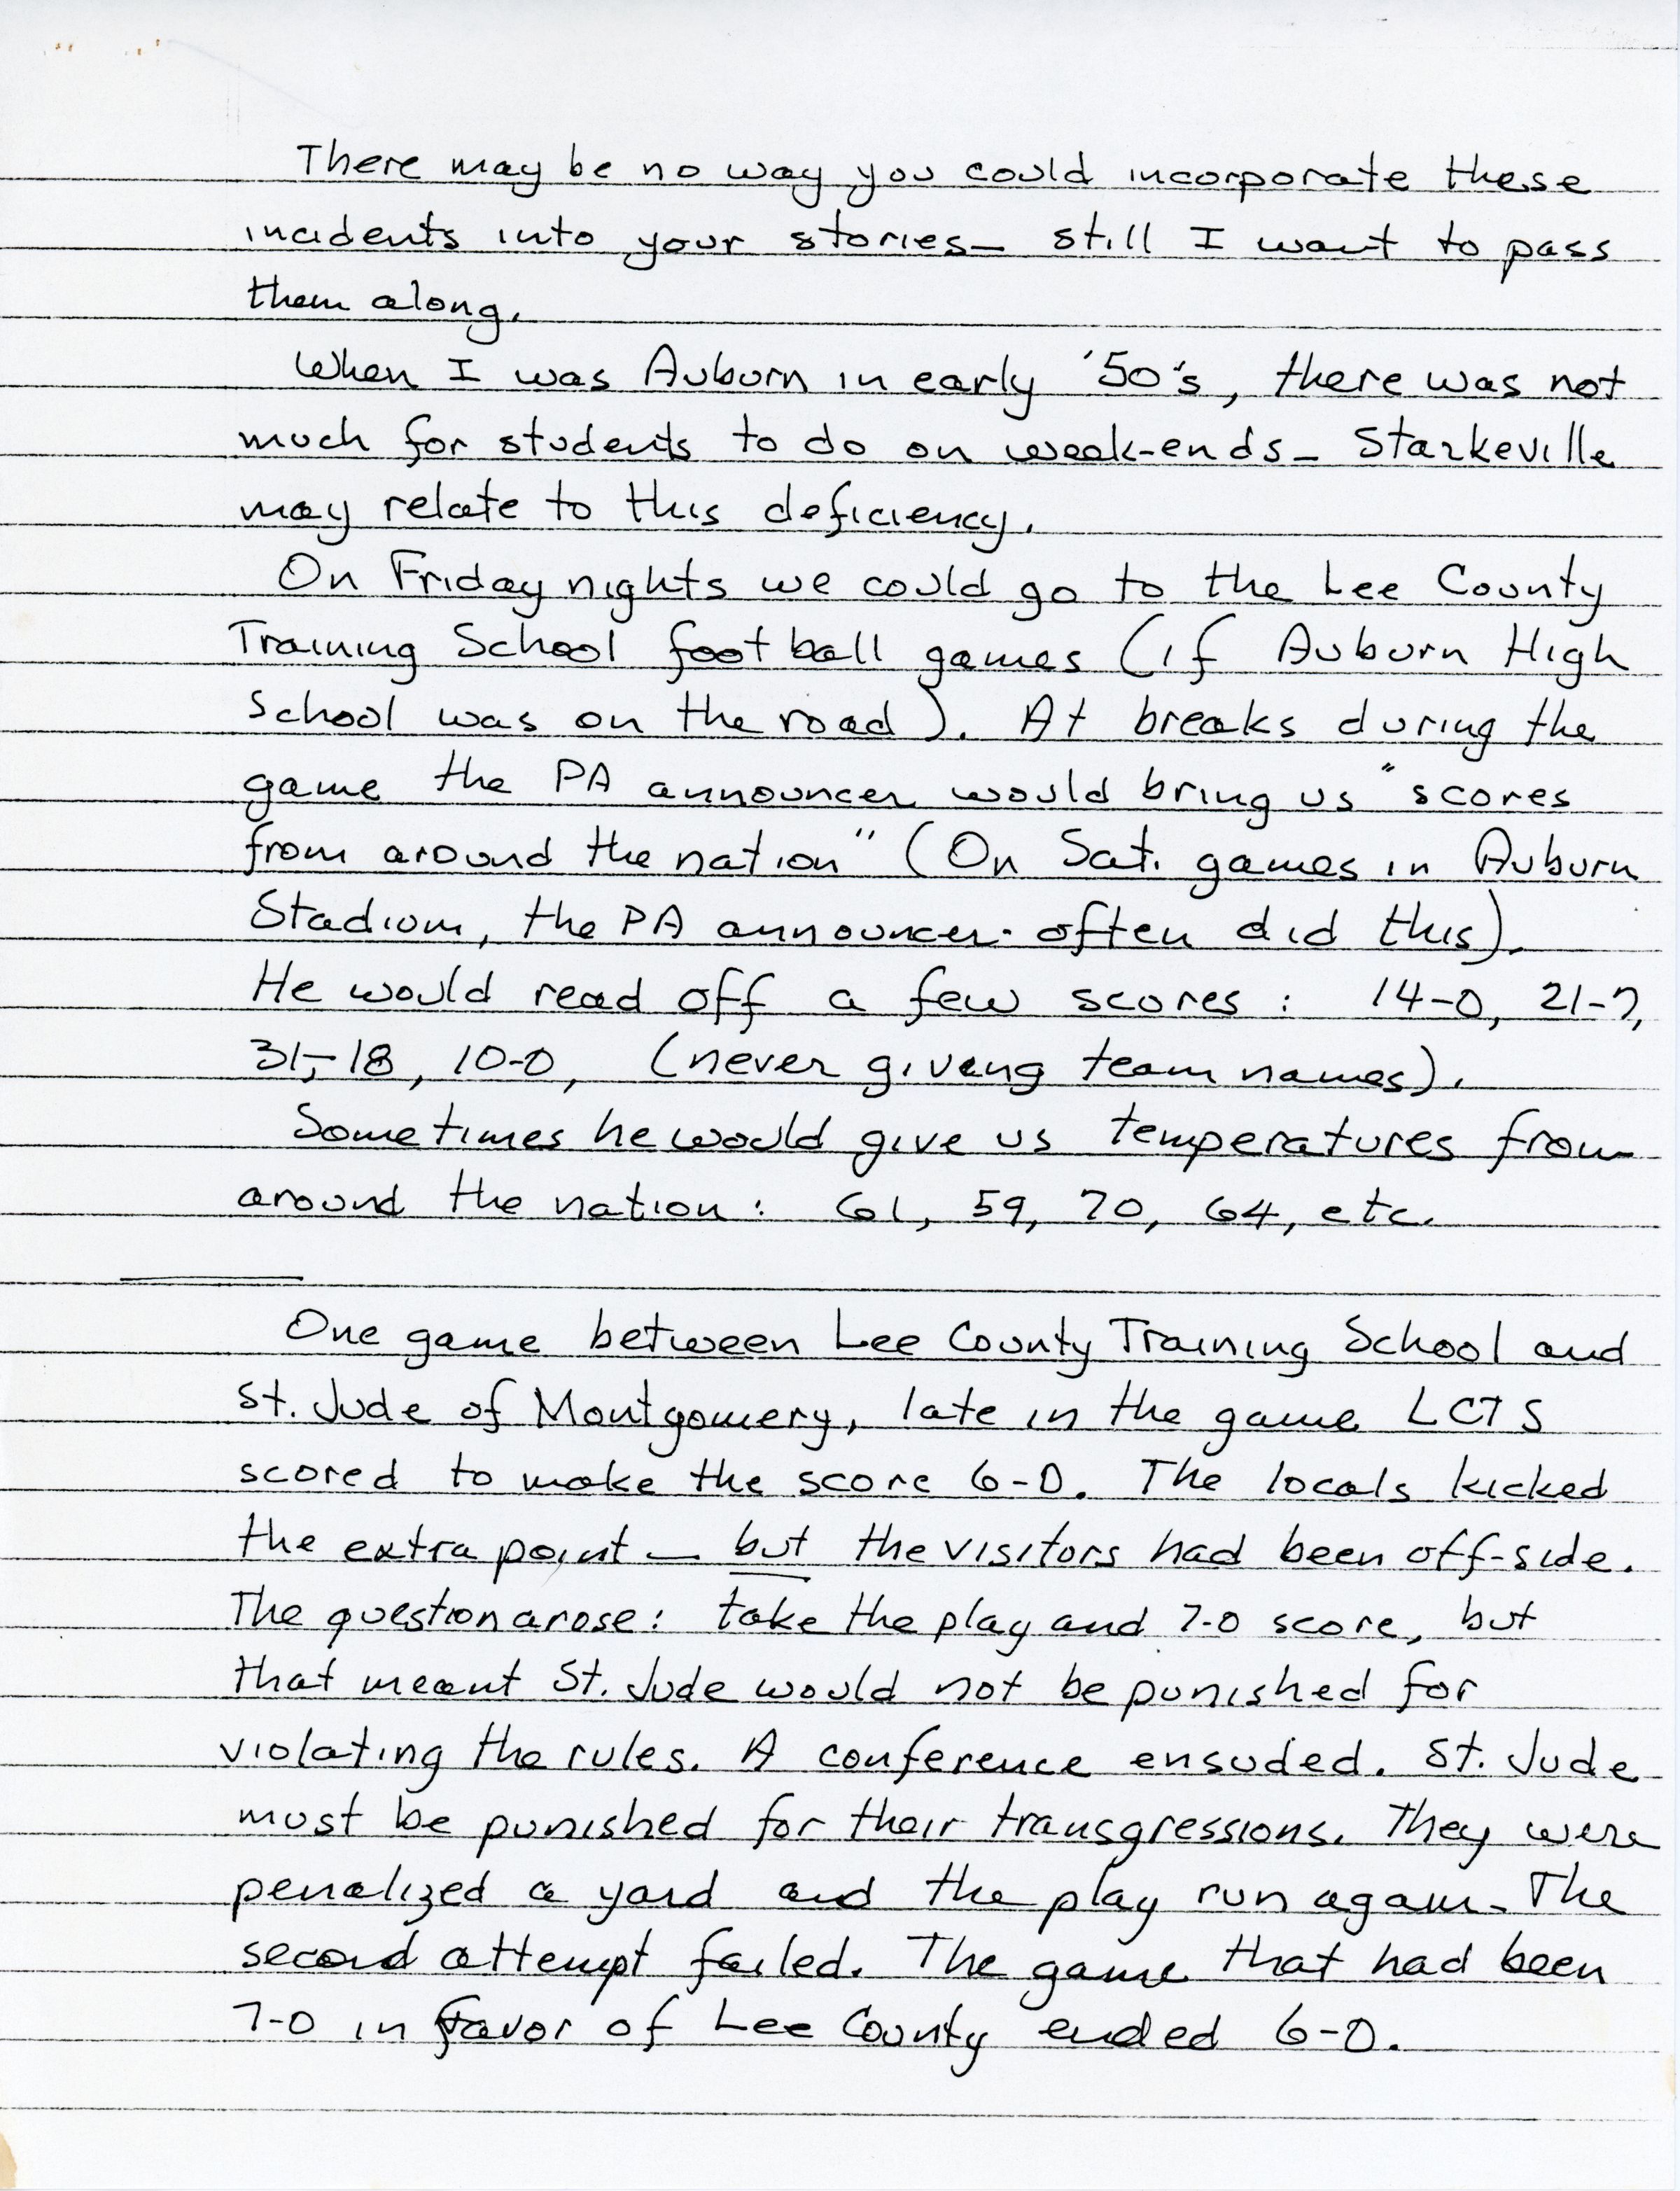 There may be no way you could incorporate these
incidents into your stories— still I want to pass
them along.
When I was Auburn in early '50's, there was not
much for students to do on week-ends— Starkeville
may relate to this deficiency.
On Friday nights we could go to the Lee County
Training School football games (if Auburn High
School was on the road). At breaks during the
game the PA announcer would bring us "scores
from around the nation" (On Sat. games in Auburn
Stadium, the PA announcer often did this).
He would read off a few scores: 14-0, 21-7,
31-18, 10-0, (never giving team names).
Sometimes he would give us temperatures from
around the nation: 61, 59, 70, 64, etc.
One game between Lee County Training School and
St. Jude of Montgomery, late in the game LCTS
scored to make the score 6-0. The locals kicked
the extra point — but the visitors had been off-side.
The question arose: take the play and 7-0 score, but
that meant St. Jude would not be punished for
violating the rules. A conference ensuded. St. Jude
must be punished for their transgressions. They were
penalized a yard and the play run again. The
second attempt failed. The game that had been
7-0 in favor of Lee County ended 6-0.